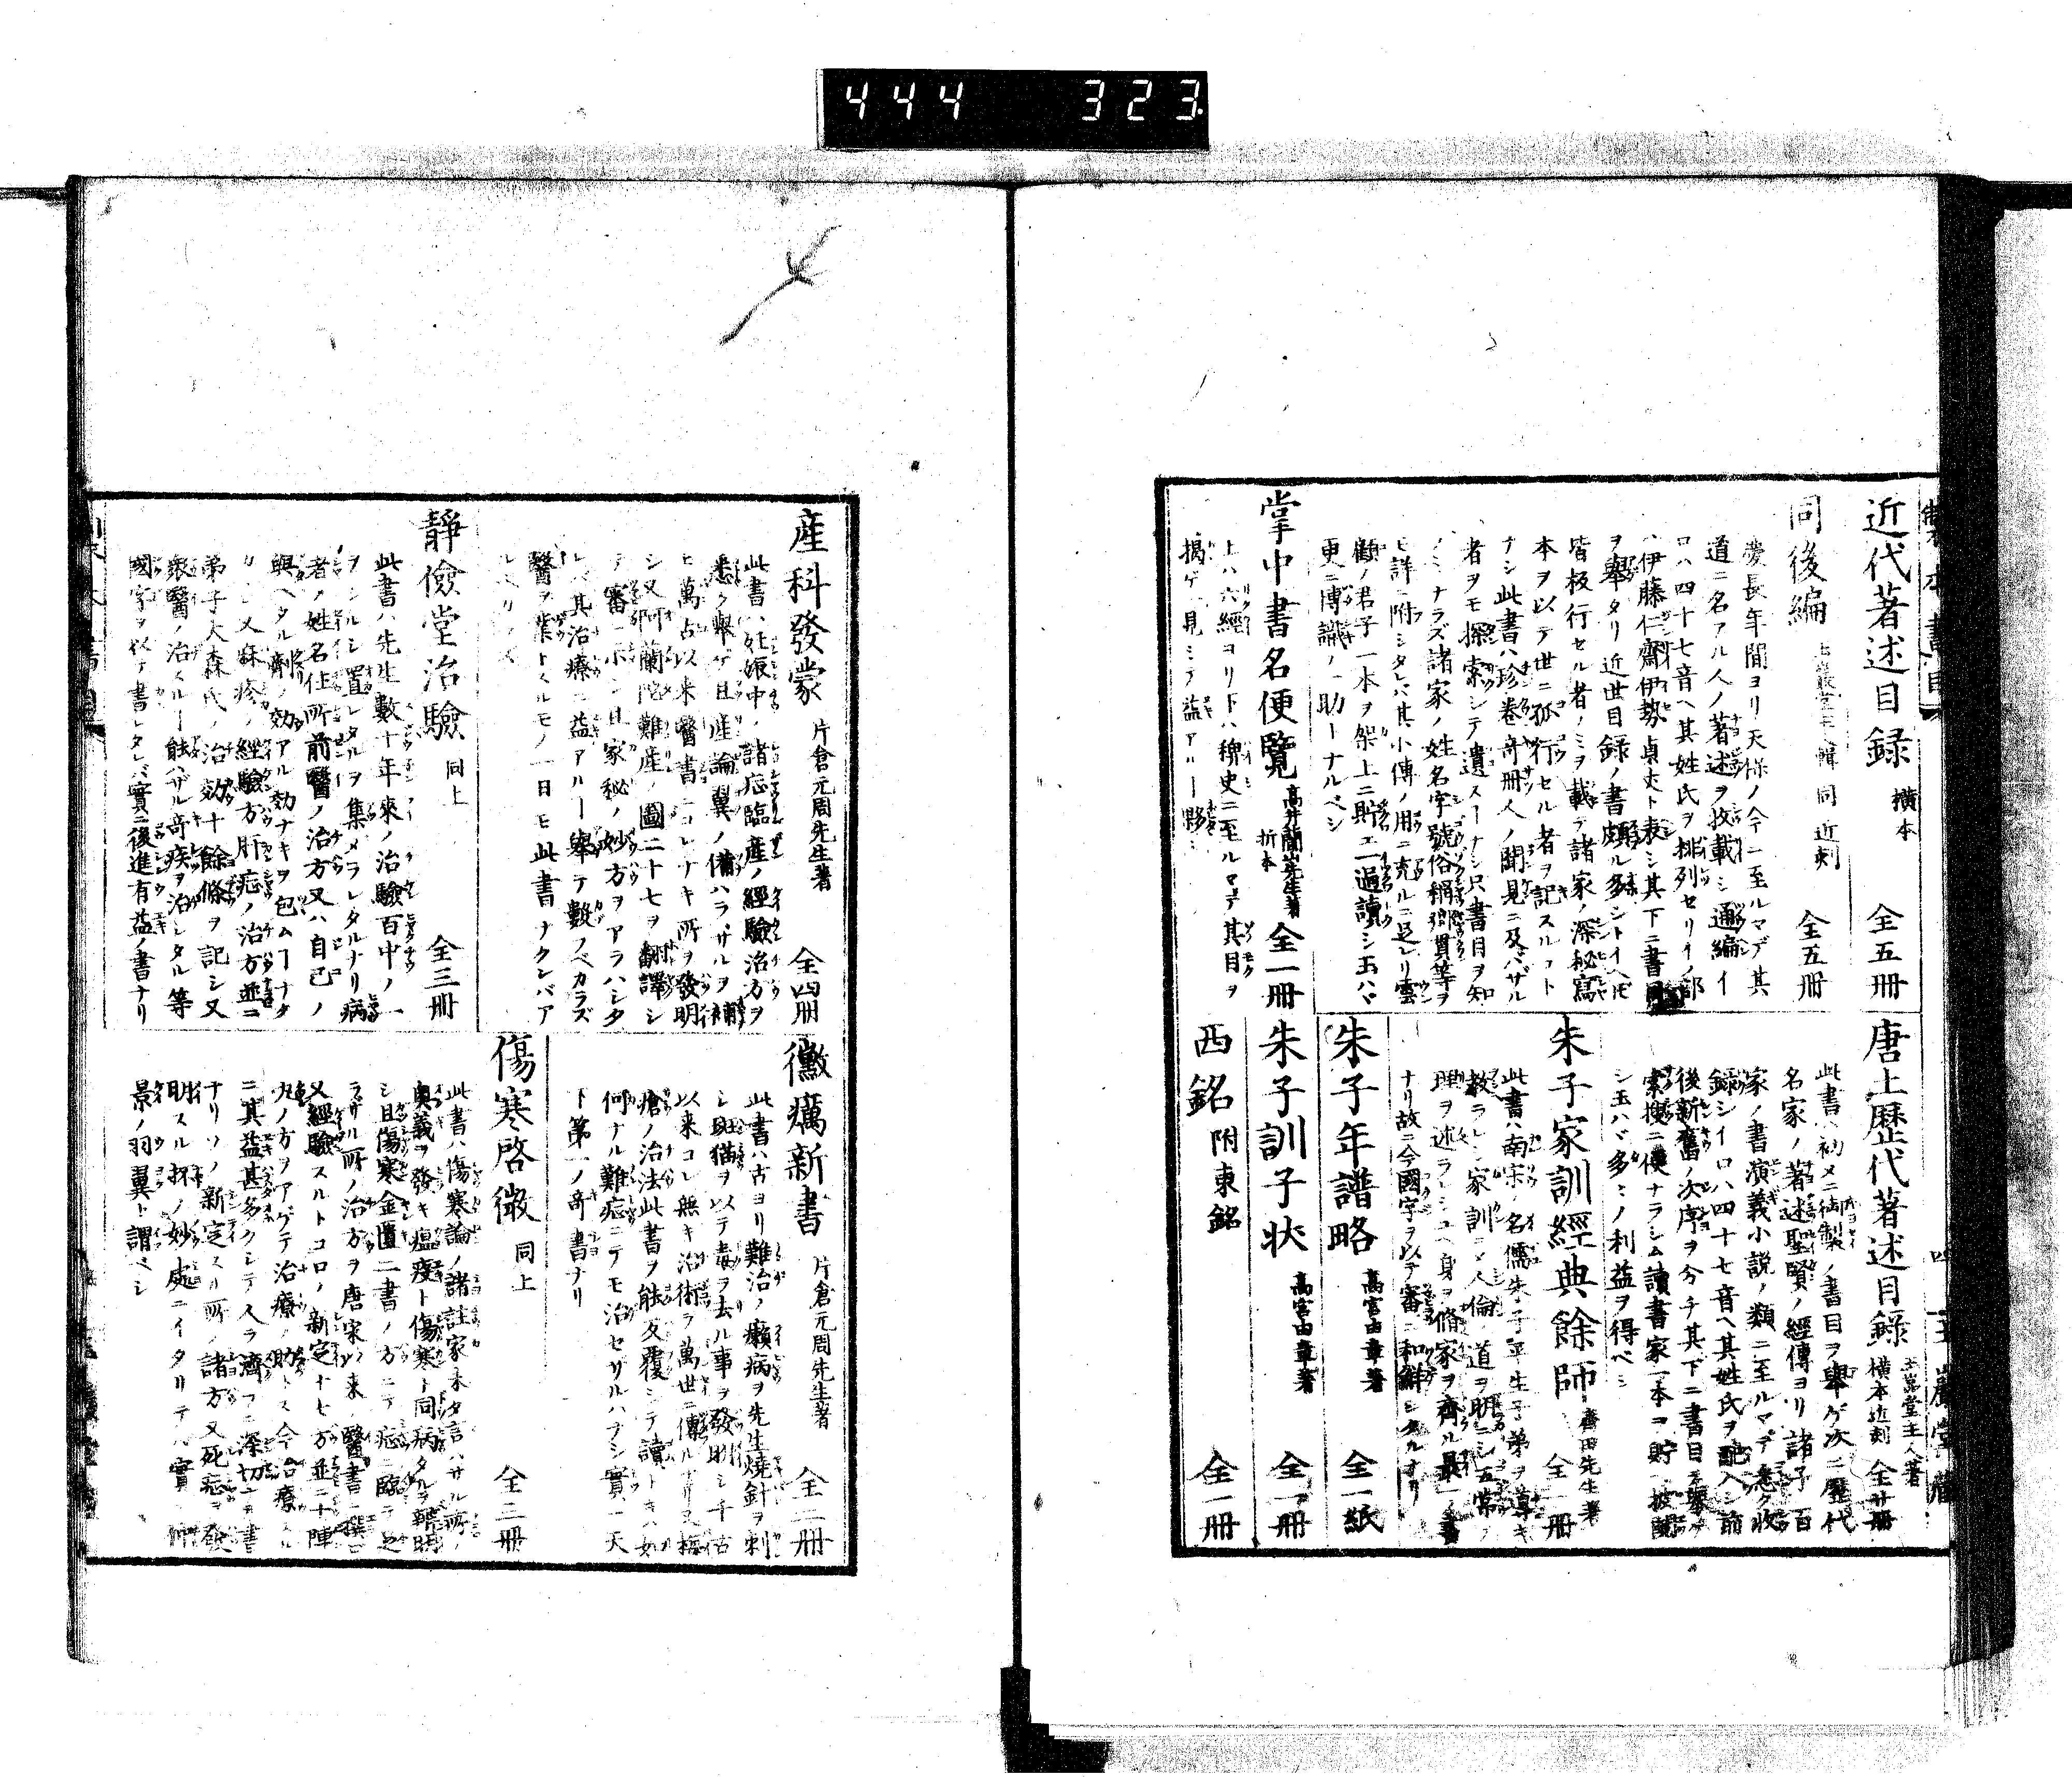 444 323
製本書目
近代著述目録 横本 全五冊
同後編 同近刻 全五冊
慶長年間ヨリ天保ノ今ニ至ルマデ其
道ニ名アル人ノ著述ヲ收載シ通編イ
ロハ四十七音ヘ其姓氏ヲ排列セリイノ部
ハ伊藤仁齋伊勢貞丈ト表シ其下ニ書目
ヲ舉タリ近世目録ノ書頗ル多シトイヘモ
皆板行セル者ノミヲ載テ諸家ノ深秘寫
本ヲ以テ世ニ孤行セル者ヲ記スルヿト
ナシ此書ハ珍巻奇冊人ノ聞見ニ及バザル
者ヲモ探索シテ遺スーナシ只書目ヲ知
ノミナラズ諸家ノ姓名字號俗稱郷貫等ヲ
モ詳ニ附シタレバ其小傳ノ用ニ充ルニ足レリ雲
顧ノ君子一本ヲ架上ニ貯ヱ一過讀シ玉ハヾ
更ニ博識ノ一助ーナルベシ
掌中書名便覽 高井蘭山先生著 折本 全一冊
上ハ六經ヨリ下ハ稗史ニ至ルマデ其目ヲ
掲ゲ一見ミテ益アルー夥シ
唐土歴代著述目録 主人著 横本近刻 全廿冊
此書ハ初メニ御製ノ書目ヲ舉ゲ次ニ歴代
名家ノ著述聖賢ノ經傳ヨリ諸子百
家ノ書演義小説ノ類ニ至ルマデ悉ク收
録シイロハ四十七音ヘ其姓氏ヲ配入シ前
後新舊ノ次序ヲ分チ其下ニ書目ヲ舉テ
索搜ニ便ナラシム讀書家一本ヲ貯ヘ披閲
シ玉ハヾ多々ノ利益ヲ得ベシ
朱子家訓經典餘師 齊田先生著 全一冊
此書ハ南宋ノ名儒朱子平生子弟ヲ導キ
教ラレシ家訓ニメ人倫ノ道ヲ明ニシ五常ノ
理ヲ述ラレシユヘ身ヲ脩家ヲ齊ル最一ノ書
ナリ故ニ今國字ヲ以テ審ニ和解シタルナリ
朱子年譜略 高宮由章著 全一紙
朱子訓子状 高宮由章著 全一冊
西銘 附東銘 全一冊
産科發蒙 片倉元周先生著 全四冊
此書ハ妊娠中ノ諸症臨産ノ經驗治方ヲ
悉ク舉ゲ且産論翼ノ備ハラザルヲ補
ヒ萬古以来醫書ニコレナキ所ヲ發明
シ又阿蘭陀難産ノ圖二十七ヲ翻譯シ
テ審ニ示シ且家秘ノ妙方ヲアラハシタ
レバ其治療ニ益アルー舉テ數ノベカラズ
醫ヲ業トスルモノ一日モ此書ナクンバア
ルベカラズ
靜儉堂治驗 同上 全三冊
此書ハ先生數十年來ノ治驗百中ノ一
ヲシルシ置レタルヲ集メラレタルナリ病
者ノ姓名住所前醫ノ治方又ハ自己ノ
與ヘタル劑ノ効アル効ナキヲ包ムヿナク
又麻疹ノ經驗方肝症ノ治方並ニ
弟子大森氏ノ治効十餘條ヲ記シ又
衆醫ノ治スルー能ハザル奇疾ヲ治シタル等
國字ヲ以テ書レタレバ實ニ後進有益ノ書ナリ
黴癘新書 片倉元周先生著 全二冊
此書ハ古ヨリ難治ノ癩病ヲ先生燒針ヲ刺
シ斑猫ヲ以テ毒ヲ去ル事ヲ發明シ千古
以来コレ無キ治術ヲ萬世ニ傳ルナリ又黴
瘡ノ治法此書ヲ能反覆シテ讀トキハ如
何ナル難症ニテモ治セザルハナシ實ニ天
下第一ノ奇書ナリ
傷寒啓微 同上 全三冊
此書ハ傷寒論ノ諸註家未タ言ハサル所ノ
奧義ヲ發キ瘟疫ト傷寒ト同病タルヲ辨明
シ且傷寒金匱二書ノ方ニテ症ニ臨テ足
ラザル所ノ治方ヲ唐宋以来ノ醫書ニ撰ミ
又經驗スルトコロノ新定十七方並ニ十陣
九ノ方ヲアゲテ治療ノ助トス今治療スル
ニ其益甚多クシテ人ヲ濟フニ深切ナル書
ナリソノ新定スル所ノ諸方又死症ヲ發
明スル抔ノ妙處ニイタリテハ實ニ仲
景ノ羽翼ト謂ベシ